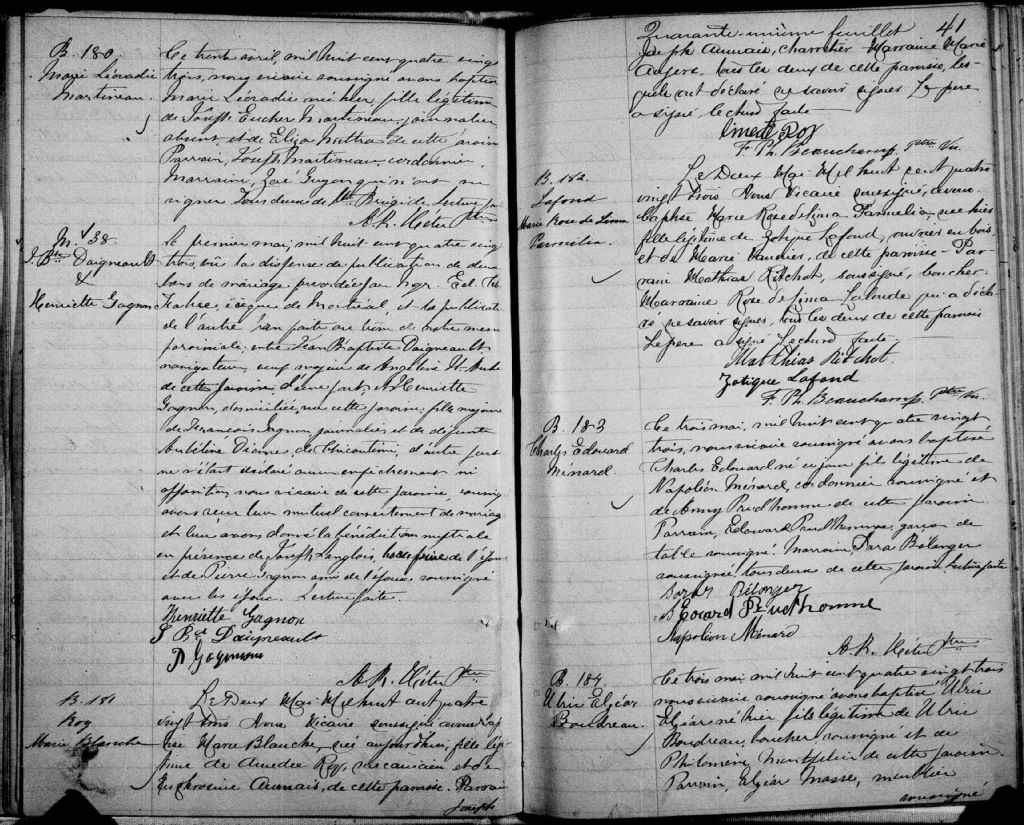 B. 180.
Marie Léocadie
Martineau.
Ce trente avril, mil huit cent quatre vingt
trois, nous vicaire soussigné avons baptisé
Marie Léocadie née hier, fille légitime
de Joseph Eucher Martineau, journalier
absent, et de Eliza de cette paroisse
Parrain, Joseph Martineau, cordonnier,
Marraine, Zoé Guyon qui n'ont su
signer Tous deux de Ste Brigide. Lecture f
A. R. Hétu Ptre
M. 38.
J. Bte Daigneault
&
Henriette Gagnon
Le premier mai, mil huit cent quatre vingt
trois, vû la dispense de publication de deux
bans de mariage accordée par Mgr. Ed. Chs
Fabre, évêque de Montréal, et la publication
de l'autre ban faite au prône de notre messe
paroissiale; entre Jean Baptiste Daigneault
navigateur, veuf majeur de
de cette paroisse, d'une part; et Henriette
Gagnon, domiciliée en cette paroisse, fille majeure
de Francois Gagnon, journalier, et de défunte
Dionne, de Chicoutimi, d'autre part
ne s'étant déclaré aucun empêchement ni
opposition, nous vicaire de cette paroisse, soussigné
avons reçu leur mutuel consentement de mariage
et leur avons donné la bénédiction nuptiale
en présence de Joseph Langlois, de l'époux
et de Pierre Gagnon ami de l'épouse soussigné
avec les époux. Lecture faite.
Henriette Gagnon
J Bt Daigneault
P Gagnon
A. R. Hétu Ptre
B. 181
Roy
Marie Blanche
Le Deux Mai Mil huit cent quatre
vingt trois Nous Vicaire soussigné avons bap
tisé Marie Blanche, née aujourd'hui, fille lég
itime de Amedée Roy, mecanicien et de
Euphrosine Aumais, de cette paroisse. Parrain
Joseph
Quarante-unième feuillet 41
Joseph Aumais, charretier Marraine Marie
Augers, tous les deux de cette paroisse, les-
quels ont déclaré ne savoir signer Le pere
a signé, lecture faite
Amédé Roy
F. Ph. Beauchamp Ptre Vic.
B. 182.
Lafond
Marie Rose de Lima
Parmélia.
Le Deux Mai Mil huit cent quatre
vingt trois Nous Vicaire soussigné, avons
baptisé Marie Rose de Lima Parmelia, née hier
fille légitime de Zotique Lafond, ouvrier en bois
et de Marie Vannier, de cette paroisse. Par
rain Mathias Ritchot, soussigné, boucher.
Marraine Rose de Lima Lalonde qui a décla
ré ne savoir signer, tous les deux de cette paroisse
Le pere a signé Lecture faite.
Matthias Ritchot.
Zotique Lafond
F. Ph. Beauchamp Ptre Vic.
B. 183
Charles Edouard
Ménard
Ce trois mai, mil huit cent quatre vingt
trois, nous vicaire soussigné avons baptisé
Charles Edouard né ce jour fils légitime de
Napoléon Ménard, cordonnier soussigné et
de Anny Prud'homme de cette paroisse.
Parrain, Edouard Prud'homme, garçon de
table soussigné. Marraine, Sara Bélanger
soussignée, tous deux de cette paroisse. Lecture faite
Sarah Bélanger
Edouard Prudhomme
Napoléon Ménard
A. R. Hétu Ptre
B. 184.
Ulric Elzéar
Boudreau.
Ce trois mai, mil huit cent quatre vingt trois
nous vicaire soussigné avons baptisé Ulric
Elzéar né hier fils légitime de Ulric
Boudreau, boucher soussigné et de
Philomène Montplein de cette paroisse
Parrain, Elzéar Masse, meublier
soussigné